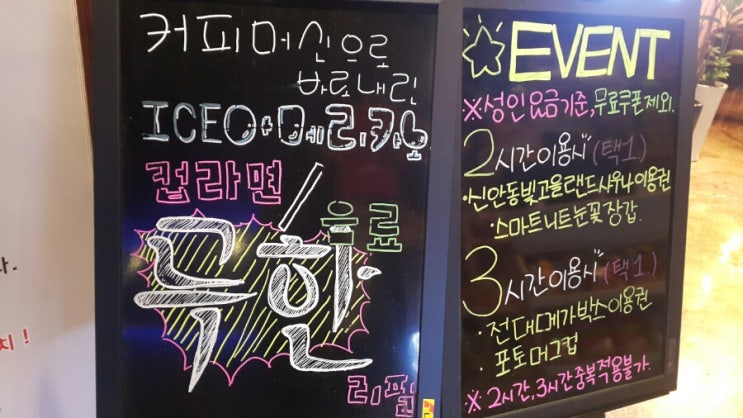 커피머신으로
바로내린
ICE아메리카노
컵라면
음료
무한
리필
EVENT
※성인요금기준, 무료쿠폰제외.
2시간이용시 (택1.)
·신안동빛고을랜드사우나이용권
·스마트니트눈꽃장갑.
3시간이용시 (택1.)
·전대메가박스이용권
·포토머그컵
※2시간, 3시간중복적용불가.
다.
지!